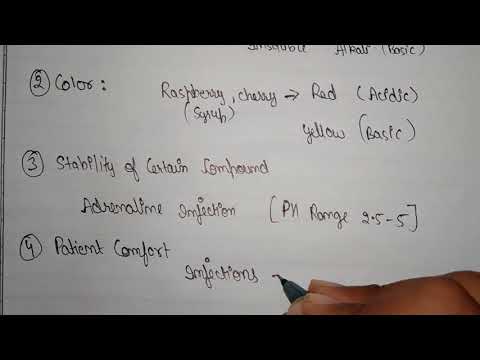 Unstable Alkali (Basic)
② Color : Raspberry, cherry → Red (Acidic)
(Syrup)
Yellow (Basic)
③ Stability of Certain Compound
Adrenaline Injection [PH Range 2.5-5]
④ Patient Comfort
Injections